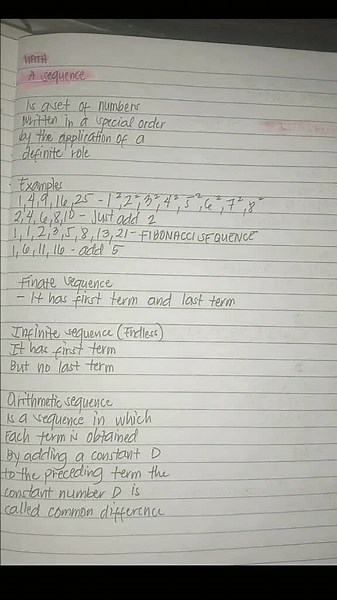 MATH
A sequence
Is a set of numbers
written in a special order
by the application of a
definite role
Examples
1,4,9,16,25 - 1²,2²,3²,4²,5²,6²,7²,8²
2,4,6,8,10 - Just add 2
1,1,2,3,5,8,13,21 - FIBONACCI SEQUENCE
1,6,11,16 - add 5
Finate sequence
- It has first term and last term
Infinite sequence (Endless)
It has first term
But no last term
arithmetic sequence
Is a sequence in which
Each term is obtained
By adding a constant D
to the preceding term the
constant number D is
called common difference